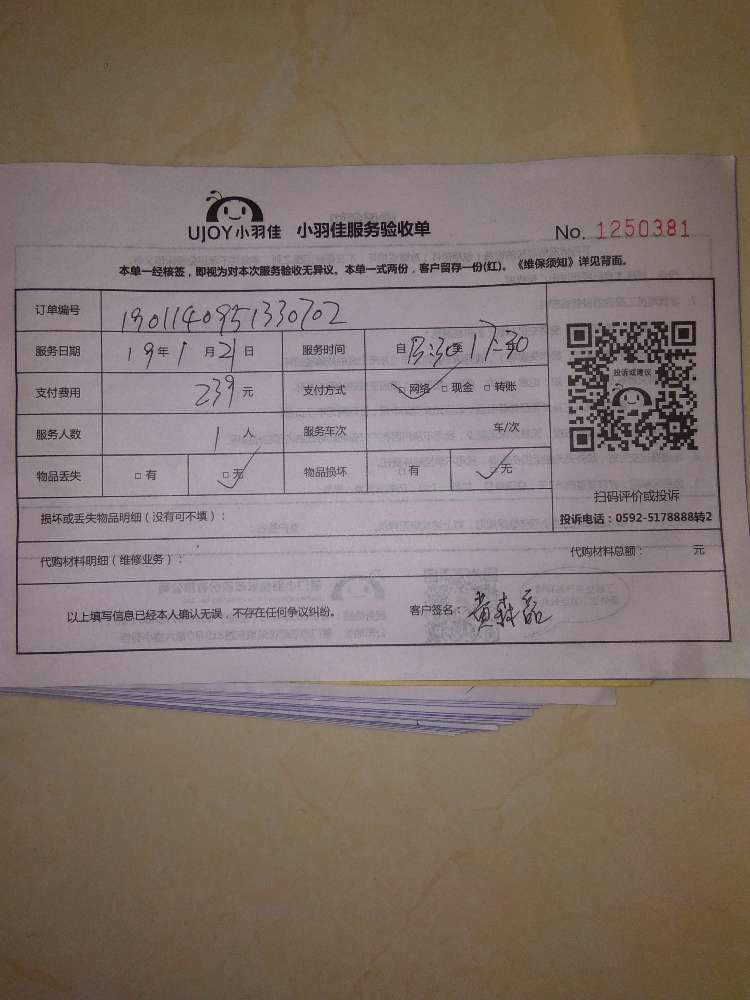 UJOY小羽佳 小羽佳服务验收单 No. 1250381
本单一经核签，即视为对本次服务验收无异议。本单一式两份，客户留存一份(红)。《维保须知》详见背面。
订单编号 1901140951330702
服务日期 19年1月21日 服务时间 自13:30至17:30
支付费用 239元 支付方式 □网络 □现金 □转账
投诉或建议
服务人数 1人 服务车次 车/次
物品丢失 □有 □无 物品损坏 □有 □无
扫码评价或投诉
损坏或丢失物品明细（没有可不填）：
投诉电话：0592-5178888转2
代购材料明细（维修业务）： 代购材料总额： 元
以上填写信息已经本人确认无误，不存在任何争议纠纷。 客户签名：黄森磊